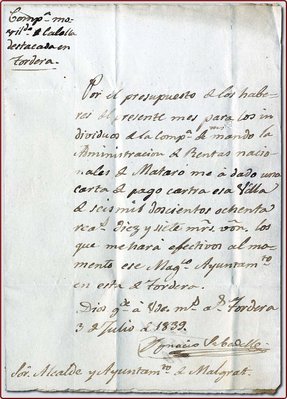 Compª. mo-
vilda. de Calella
destacada en
Tordera.
Por el presupuesto de los habe-
res del presente mes para los in-
dividuos de la Compª. de mi mando la
Administracion de Rentas nacio-
nales de Mataro me á dado una
carta de pago contra esa Villa
de seis mil doscientos ochenta
reas. diez y siete mrs. von. los
que me hará efectivos al mo-
mento ese Magco. Ayuntamto.
en esta de Tordera.
Dios gue. á V. ms. as. Tordera
3 de Julio de 1839.
Ignacio
Sor. Alcalde y Ayuntamto. de Malgrat.